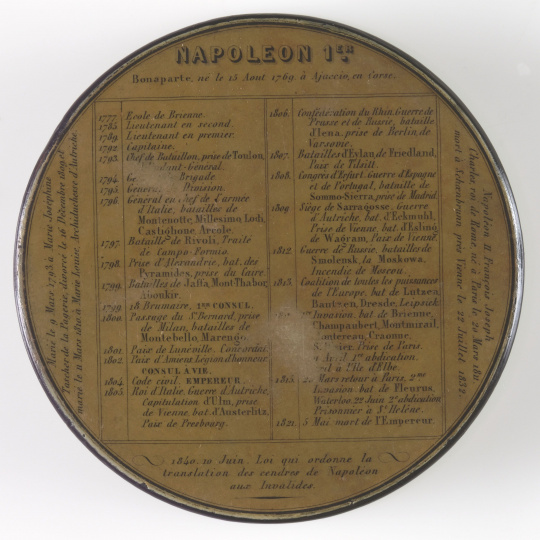 NAPOLEON 1ER
Bonaparte, né le 15 Aout 1769. à Ajaccio, en Corse.
Marié le 9 Mars 1793. à Marie Josephine
Tascher de la Pagerie, divorcé le 16 Décembre 1809 et
marié le 11 Mars 1810. à Marie Louise, Archiduchesse d'Autriche.
1777. Ecole de Brienne.
1785. Lieutenant en second.
1789. Lieutenant en premier.
1792. Capitaine.
1793. Chef de Bataillon, prise de Toulon,
dant-General.
1794. Brigade
1795. General Division.
1796. General en Chef de l'armée
d'Italie, batailles de
Montenotte, Millesimo, Lodi,
Castiglione, Arcole.
1797. Bataille de Rivoli, Traité
de Campo-Formio
1798. Prise d'Alexandrie, bat. des
Pyramides, prise du Caire.
1799. Batailles de Jaffa, Mont Thabor,
Aboukir.
1799. 18 Brumaire, 1er CONSUL.
1800. Passage du St. Bernard, prise
de Milan, batailles de
Montebello, Marengo.
1801. Paix de Luneville. Concordat.
1802. Paix d'Amiens. Légion d'honneur
CONSUL A VIE.
1804. Code civil. EMPEREUR.
1805. Roi d'Italie, Guerre d'Autriche,
Capitulation d'Ulm, prise
de Vienne, bat. d'Austerlitz,
Paix de Presbourg.
1806. Confédération du Rhin, Guerre de
Prusse et de Russie, bataille
d'Iena, prise de Berlin, de
Varsovie.
1807. Batailles d'Eylau, de Friedland,
Paix de Tilsitt
1808. Congres d'Erfurt. Guerre d'Espagne
et de Portugal, bataille de
Sommo-Sierra, prise de Madrid.
1809. Siège de Sarragosse, Guerre
d'Autriche, bat. d'Eckmuhl,
Prise de Vienne, bat. d'Esling
de Wagram, Paix de Vienne.
1812. Guerre de Russie, batailles de
Smolensk, la Moskowa,
Incendie de Moscou.
1813. Coalition de toutes les puissances
de l'Europe, bat. de Lutzen
Bautzen, Dresde, Leipsick
Invasion, bat. de Brienne,
Champaubert, Montmirail,
Craonne,
Prise de Paris.
1re abdication,
l'Ile d'Elbe.
1815. Mars retour à Paris, 2me
Invasion, bat. de Fleurus,
Waterloo, 22 Juin 2e abdication
Prisonnier à Ste Hélène.
1821. 5 Mai, mort de l'Empereur.
Napoleon II François Joseph
Charles, roi de Rome, né à Paris le 20 Mars 1811
mort à Schoenbrunn près Vienne le 22 Juillet 1832.
1840. 10 Juin. Loi qui ordonne la
translation des cendres de Napoleon
aux Invalides.